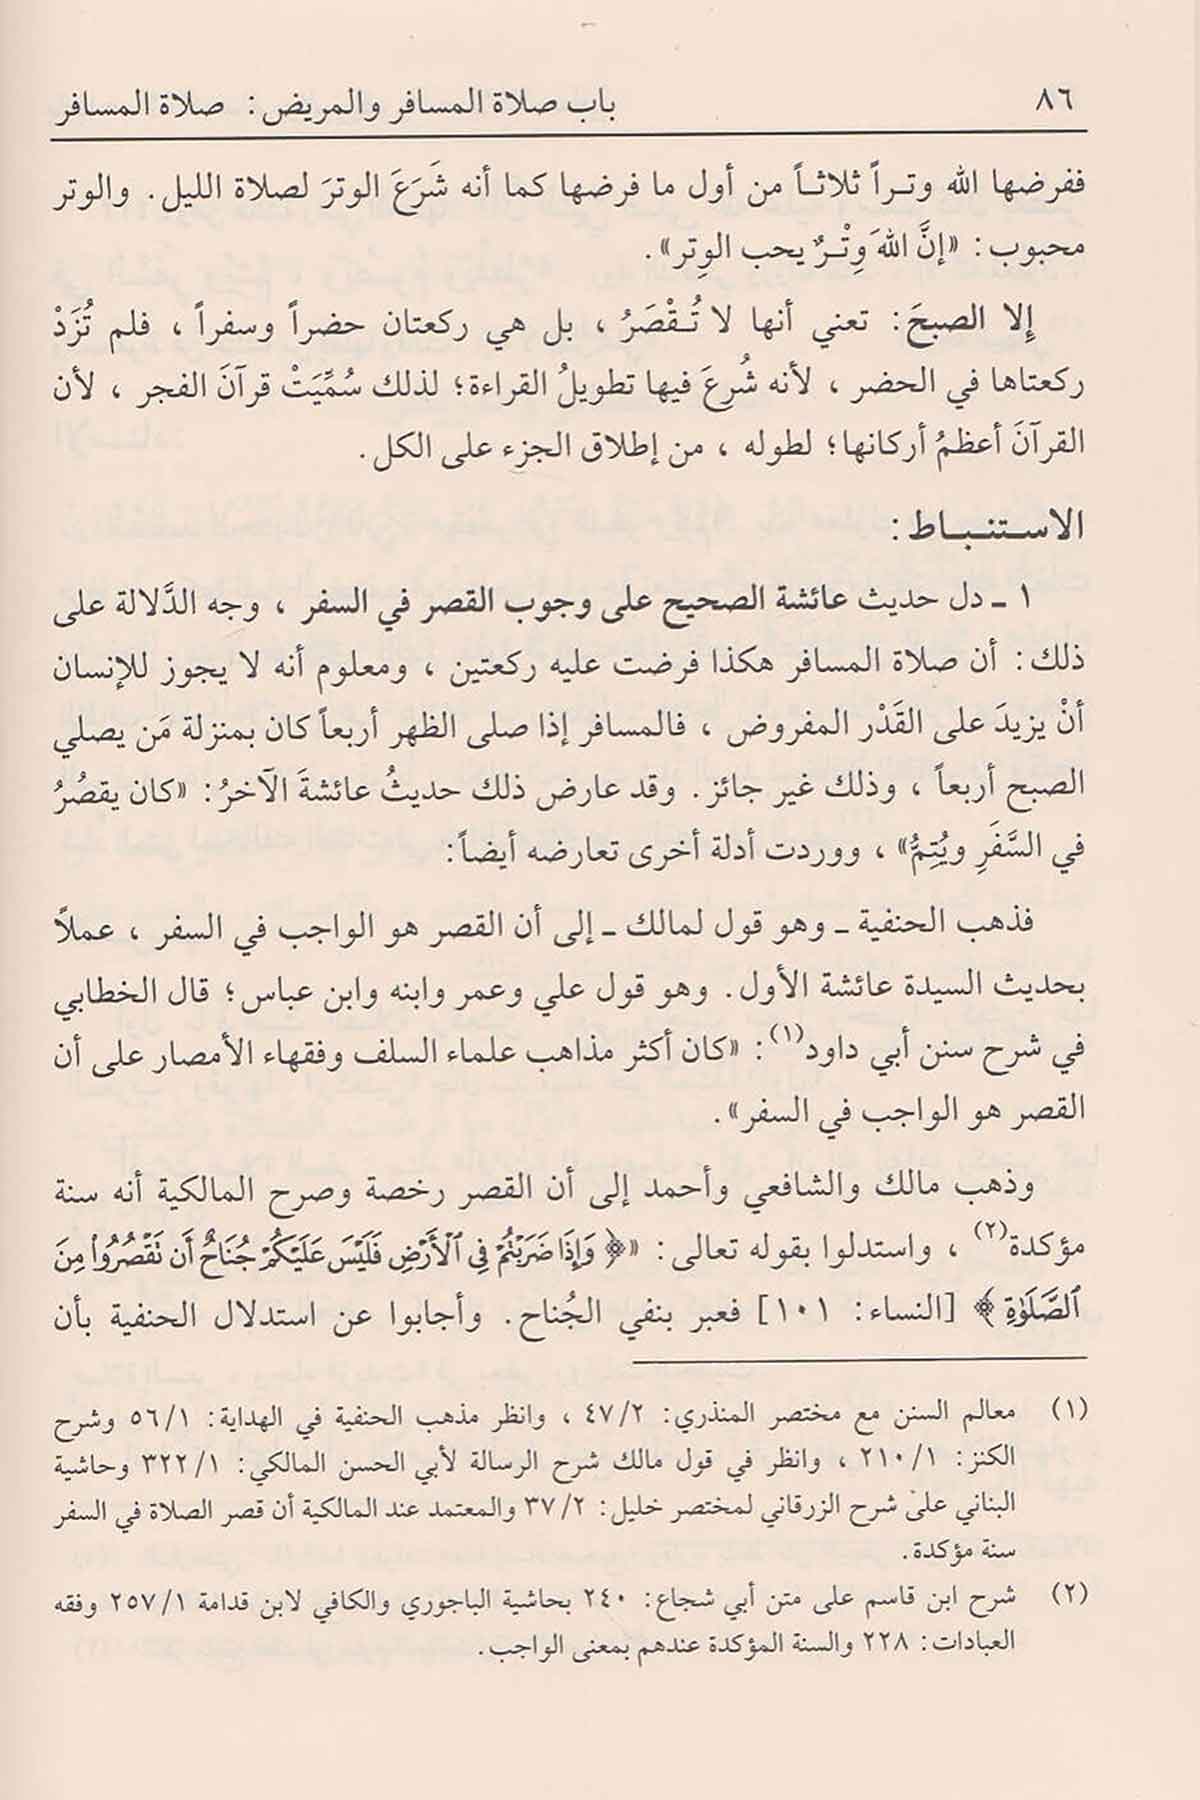 ٨٦ باب صلاة المسافر والمريض: صلاة المسافر
ففرضها الله وتراً ثلاثاً من أول ما فرضها كما أنه شَرَعَ الوترَ لصلاة الليل. والوتر
محبوب: «إنَّ اللهَ وِتْرٌ يحب الوِتر».
إلا الصبحَ: تعني أنها لا تُقْصَرُ، بل هي ركعتان حضراً وسفراً، فلم تُزَدْ
ركعتاها في الحضر، لأنه شُرعَ فيها تطويلُ القراءة؛ لذلك سُمِّيَتْ قرآنَ الفجر، لأن
القرآنَ أعظمُ أركانها؛ لطوله، من إطلاق الجزء على الكل.
الاستنباط:
١ ـ دل حديث عائشة الصحيح على وجوب القصر في السفر، وجه الدَّلالة على
ذلك: أن صلاة المسافر هكذا فرضت عليه ركعتين، ومعلوم أنه لا يجوز للإنسان
أنْ يزيدَ على القَدْر المفروض، فالمسافر إذا صلى الظهر أربعاً كان بمنزلة مَن يصلي
الصبح أربعاً، وذلك غير جائز. وقد عارض ذلك حديثُ عائشةَ الآخرُ: «كان يقصُرُ
في السَّفَرِ ويُتِمُّ»، ووردت أدلة أخرى تعارضه أيضاً:
فذهب الحنفية ـ وهو قول لمالك ـ إلى أن القصر هو الواجب في السفر، عملاً
بحديث السيدة عائشة الأول. وهو قول علي وعمر وابنه وابن عباس؛ قال الخطابي
في شرح سنن أبي داود(١): «كان أكثر مذاهب علماء السلف وفقهاء الأمصار على أن
القصر هو الواجب في السفر».
وذهب مالك والشافعي وأحمد إلى أن القصر رخصة وصرح المالكية أنه سنة
مؤكدة(٢)، واستدلوا بقوله تعالى: «﴿ وَإِذَا ضَرَبْتُمْ فِي ٱلْأَرْضِ فَلَيْسَ عَلَيْكُمْ جُنَاحٌ أَن تَقْصُرُوا۟ مِنَ
ٱلصَّلَوٰةِ ﴾ [النساء: ١٠١] فعبر بنفي الجُناح. وأجابوا عن استدلال الحنفية بأن
(١) معالم السنن مع مختصر المنذري: ٤٧/٢، وانظر مذهب الحنفية في الهداية: ٥٦/١ وشرح
الكنز: ٢١٠/١، وانظر في قول مالك شرح الرسالة لأبي الحسن المالكي: ٣٢٢/١ وحاشية
البناني على شرح الزرقاني لمختصر خليل: ٣٧/٢ والمعتمد عند المالكية أن قصر الصلاة في السفر
سنة مؤكدة.
(٢) شرح ابن قاسم على متن أبي شجاع: ٢٤٠ بحاشية الباجوري والكافي لابن قدامة ٢٥٧/١ وفقه
العبادات: ٢٢٨ والسنة المؤكدة عندهم بمعنى الواجب.